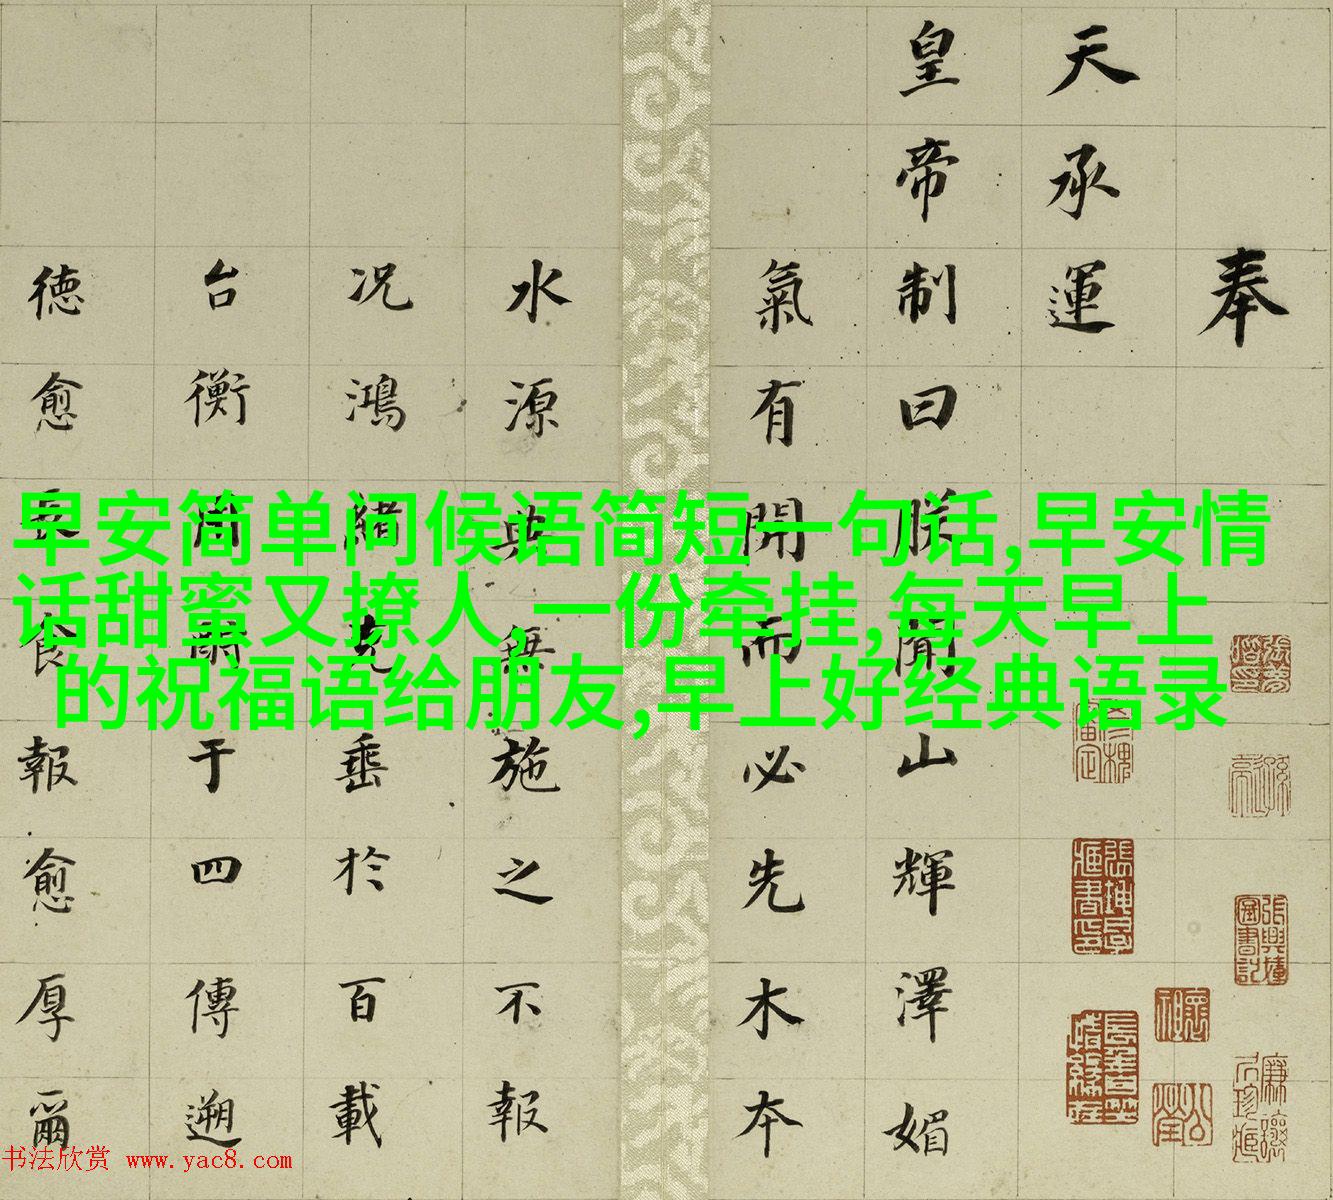 奉
天承運
皇帝制曰朕聞山輝澤媚
氣有開而必先木本
水源典無施之不報
况鴻緒克垂於百載
台衡爵于四傳遡
德愈食報愈厚爾
早安简单问候语简短一句话,早安情
话甜蜜又撩人,一份牵挂,每天早上
的祝福语给朋友,早上好经典语录
书法欣赏 www.yac8.com